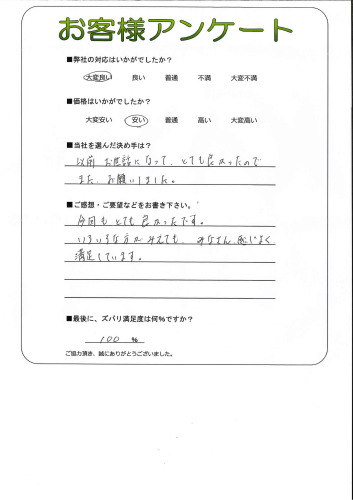 お客様アンケート
■弊社の対応はいかがでしたか？
大変良い 良い 普通 不満 大変不満
■価格はいかがでしたか？
大変安い 安い 普通 高い 大変高い
■当社を選んだ決め手は？
以前 お世話になって、とても良かったので
また お願いしました。
■ご感想・ご要望などをお書き下さい。
今回も とても 良かったです。
いろいろな方がみえても、みなさん 感じよく
満足しています。
■最後に、ズバリ満足度は何％ですか？
100 %
ご協力頂き、誠にありがとうございました。